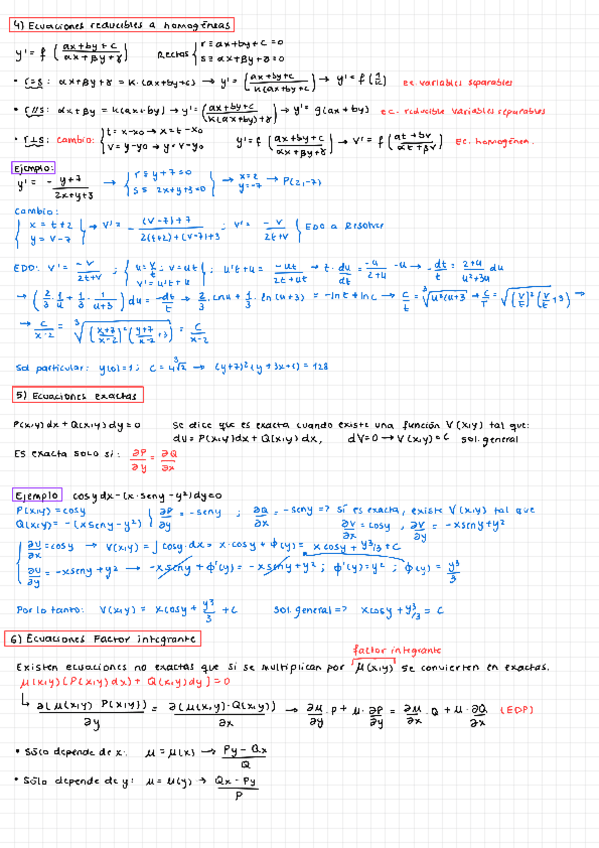 4) Ecuaciones reducibles a homogéneas
y' = f (ax+by+c / αx+βy+γ)   Rectas { r ≡ ax+by+c=0
s ≡ αx+βy+γ=0
• r=s: αx+βy+γ = K·(ax+by+c) → y' = (ax+by+c / K(ax+by+c)) → y' = f(1/K)   ec. variables separables
• r//s: αx+βy = K(ax+by) → y' = (ax+by+c / K(ax+by)+γ) → y' = g(ax+by)   ec. reducible variables separables
• r⊥s: Cambio: { t = x-x₀ → x = t-x₀
v = y-y₀ → y = v-y₀   y' = f (ax+by+c / αx+βy+γ) → v' = f (at+bv / αt+βv)   Ec. homogénea.
Ejemplo:
y' = - y+7 / 2x+y+3 → { r ≡ y+7=0
s ≡ 2x+y+3=0 → x=2
y=-7 → P(2,-7)
Cambio:
{ x = t+2
y = v-7 → v' = - (v-7)+7 / 2(t+2)+(v-7)+3 ; v' = -v / 2t+v } EDO a Resolver
EDO: v' = -v / 2t+v ; { u = v/t ; v = ut
v' = u't+u } ; u't+u = -ut / 2t+ut → t·du/dt = -u / 2+u - u → -dt/t = 2+u / u²+3u du
→ (2/3·1/u + 1/3·1/u+3) du = -dt/t → 2/3·Lnu + 1/3·ln(u+3) = -lnt+lnc → C/t = ∛u²(u+3) → C/t = ∛(v/t)²(v/t+3) →
→ C / x-2 = ∛(x+7 / x-2)²(y+7 / x-2 +3) = C / x-2
Sol particular: y(0)=1 ; C = 4∛2 → (y+7)²(y+3x+1) = 128
5) Ecuaciones exactas
P(x,y)dx + Q(x,y)dy = 0   Se dice que es exacta cuando existe una función V(x,y) tal que:
dU = P(x,y)dx + Q(x,y)dx,   dV=0 → V(x,y)=C sol. general
Es exacta solo si: ∂P/∂y = ∂Q/∂x
Ejemplo   cosydx-(x·seny-y²)dy=0
P(x,y) = cosy
Q(x,y) = -(xseny-y²) } ∂P/∂y = -seny ; ∂Q/∂x = -seny => Sí es exacta, existe V(x,y) tal que
∂V/∂x = cosy , ∂V/∂y = -xseny+y²
{ ∂U/∂x = cosy → V(x,y) = ∫cosy·dx = x·cosy + ϕ(y) = xcosy + y³/3 + C
∂U/∂y = -xseny+y² → -xseny + ϕ'(y) = -xseny+y² ; ϕ'(y) = y² ; ϕ(y) = y³/3
Por lo tanto: V(x,y) = xcosy + y³/3 + C   Sol. general => xcosy + y³/3 = C
6) Ecuaciones Factor integrante
factor integrante
Existen ecuaciones no exactas que si se multiplican por μ(x,y) se convierten en exactas.
μ(x,y)[P(x,y)dx) + Q(x,y)dy] = 0
↳ ∂(μ(x,y) P(x,y)) / ∂y = ∂(μ(x,y)·Q(x,y)) / ∂x → ∂μ/∂y·P + μ·∂P/∂y = ∂μ/∂x·Q + μ·∂Q/∂x (EDP)
• Sólo depende de x: μ = μ(x) → Py-Qx / Q
• Sólo depende de y: μ = μ(y) → Qx-Py / P